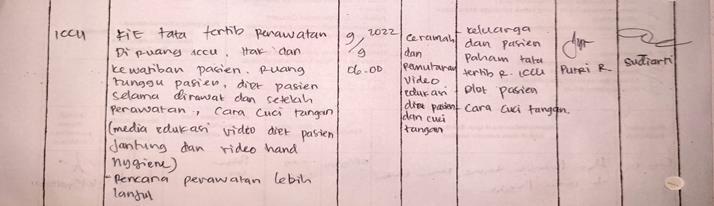 ICCU
KIE tata tertib perawatan
Di ruang ICCU. Hak dan
kewajiban pasien. Ruang
tunggu pasien, diet pasien
selama dirawat dan setelah
perawatan, cara cuci tangan
(media edukasi video diet pasien
jantung dan video hand
hygiene)
- Rencana perawatan lebih
lanjut
9/9 2022
06.00
Ceramah
dan
pemutaran
video
edukasi
diet pasien
dan cuci
tangan
- keluarga
dan pasien
Paham tata
tertib R. ICCU
- Diet pasien
- Cara cuci tangan.
Putri R
Sudiarti